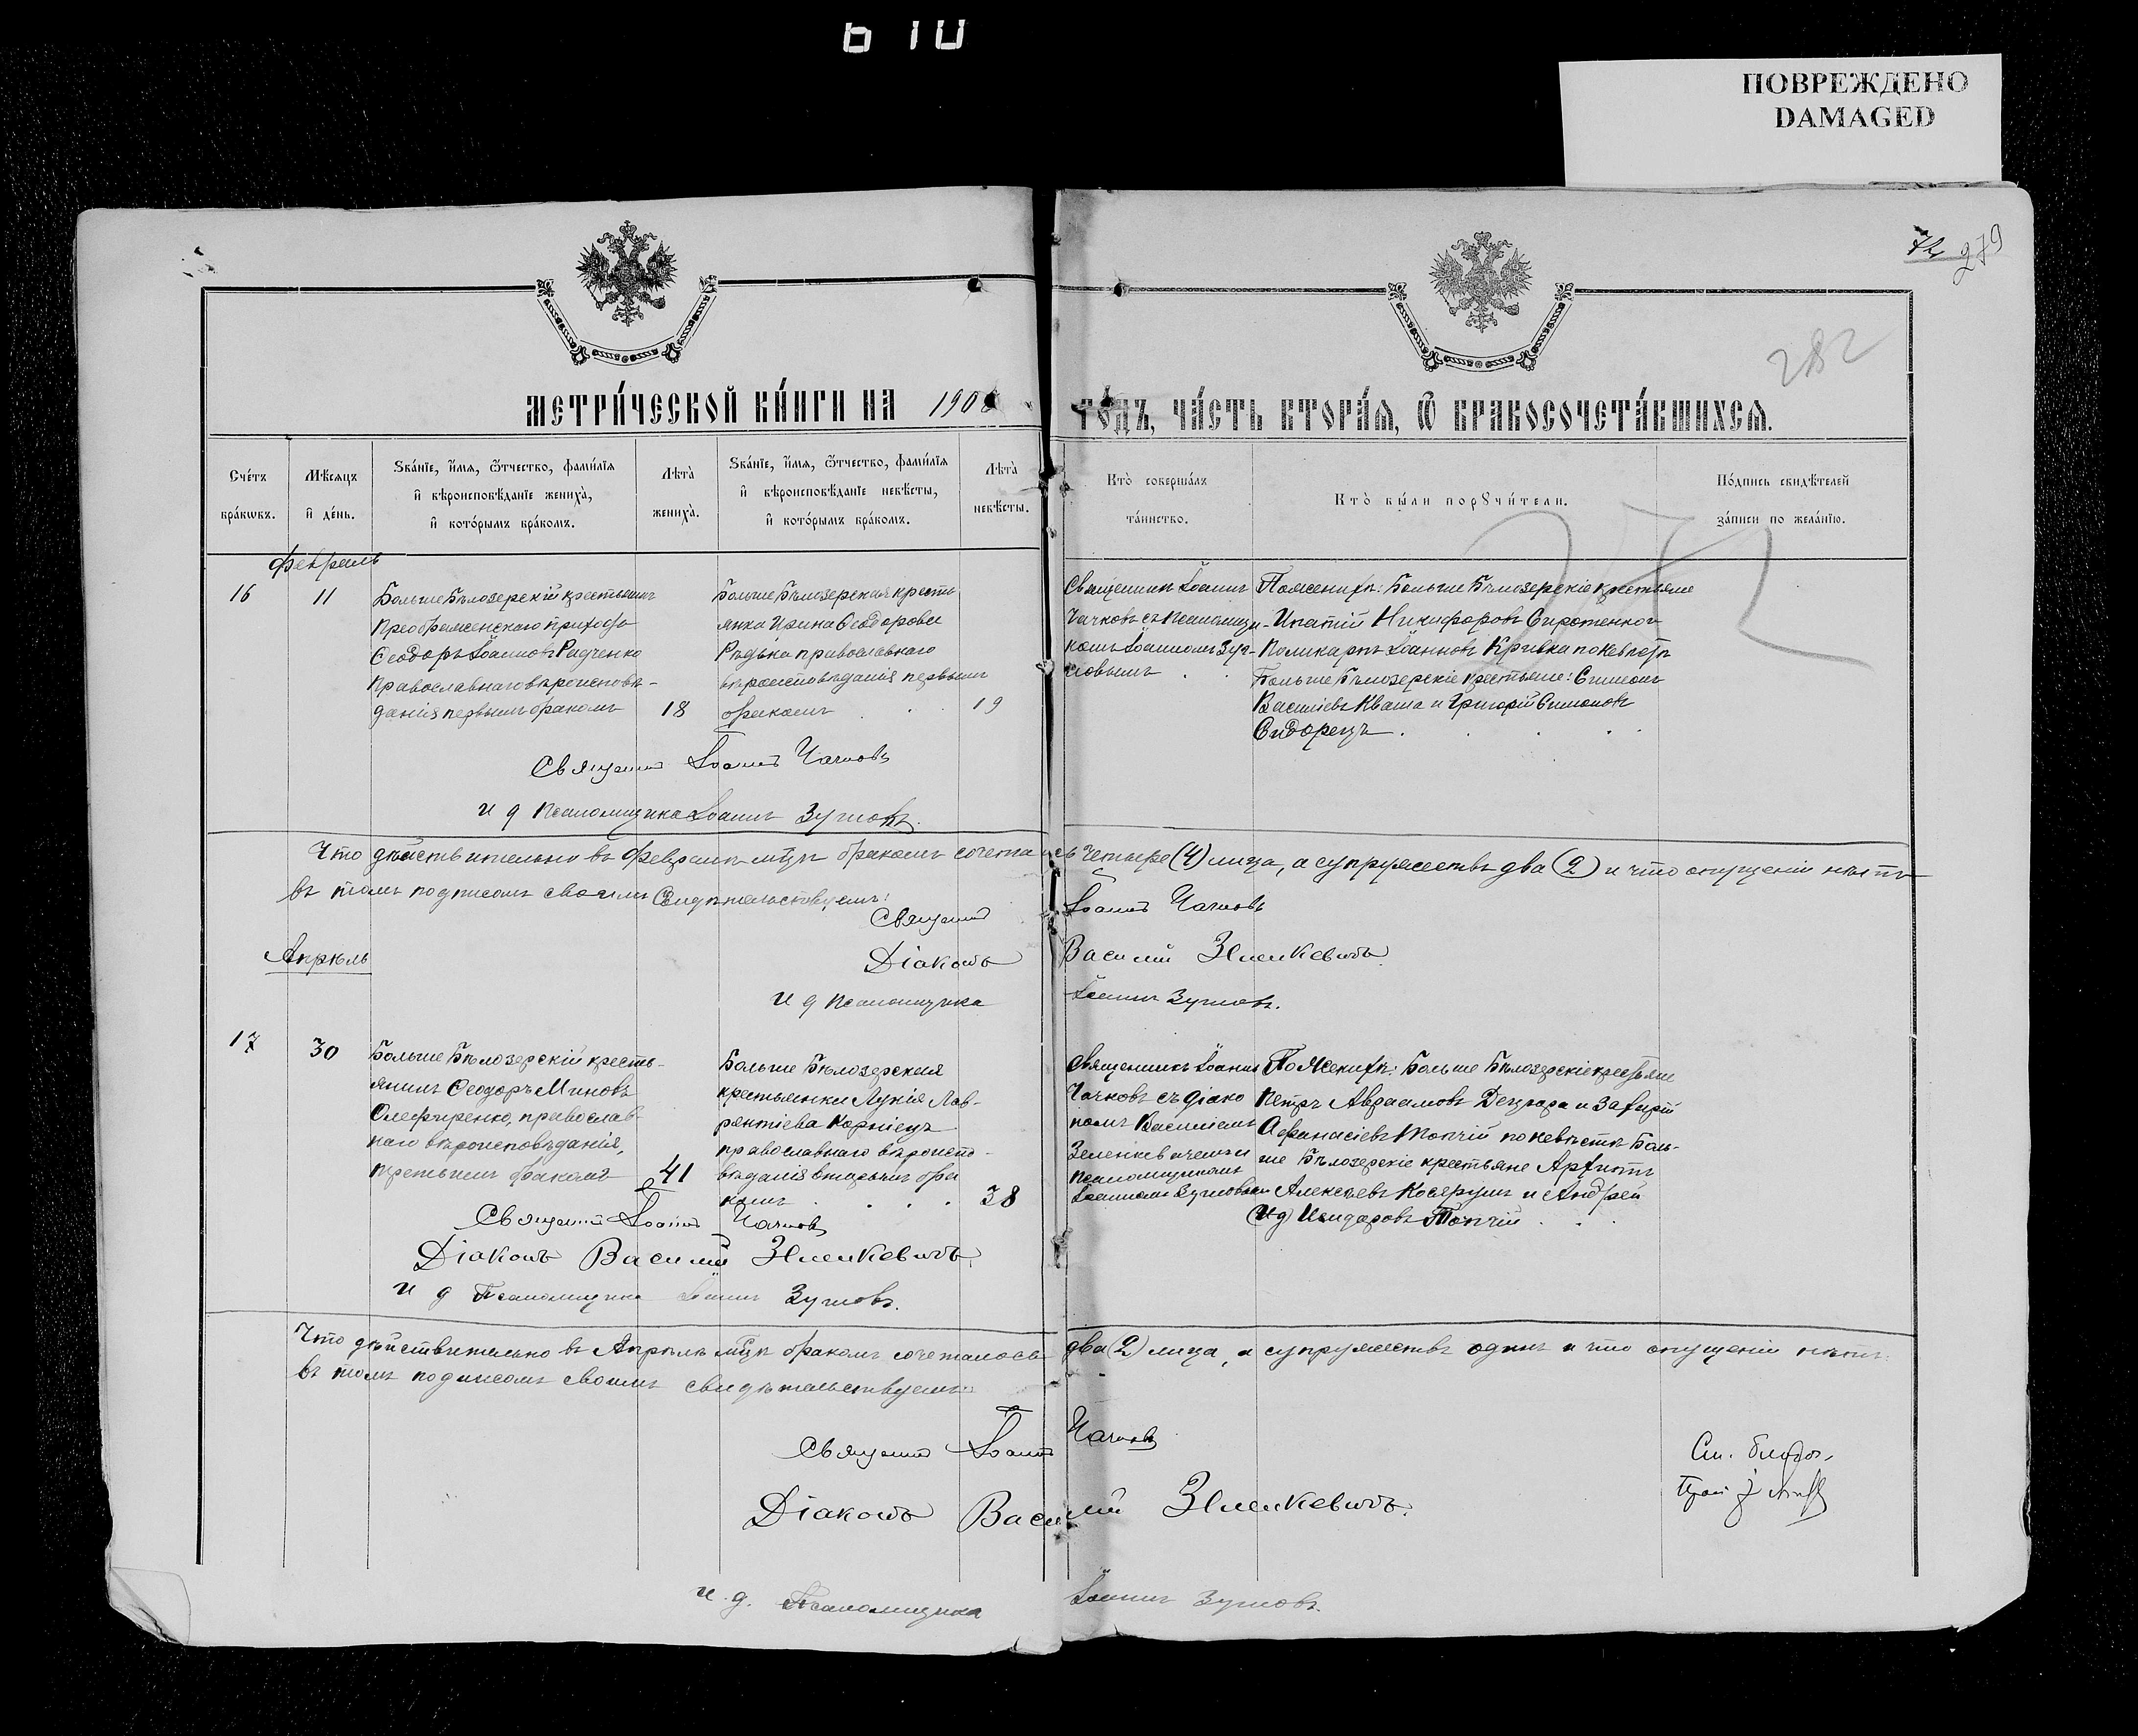 610
ПОВРЕЖДЕНО
DAMAGED
279
282
МЕТРИ́ЧЕСКОЙ КНИ́ГИ НА 190
ГО́ДЪ, ЧА́СТЬ ВТОРА́Я, Ѿ БРАКОСОЧЕТА́ВШИХСЯ.
Сче́тъ бра́кѡвъ.
Мѣ́сяцъ и҆ де́нь.
Ѕва́нїе, и҆́мя, ѻ҆́тчество, фами́лїя и҆ вѣроисповѣ́данїе жениха̀, и҆ кото́рымъ бра́комъ.
Лѣ́та̀ жениха̀.
Ѕва́нїе, и҆́мя, ѻ҆́тчество, фами́лїя и҆ вѣроисповѣ́данїе невѣ́сты, и҆ кото́рымъ бра́комъ.
Лѣ́та̀ невѣ́сты.
Кто̀ соверша́лъ та́инство.
Кто̀ бы́ли порꙋчи́тели.
По́дпись свидѣ́телей за́писи по жела́нїю.
Февраль
16
11
Больше Бѣлозерскій крестьянинъ
Преображенскаго прихода
Ѳеодоръ Іоанновъ Радченко
Православнаго вѣроисповѣ-
данія первымъ бракомъ
18
Больше Бѣлозерская кресть
янка Ирина Ѳеодорова
Рѣдька православнаго
вѣроисповѣданія первымъ
бракомъ
19
Священникъ Іоаннъ
Чачковъ съ псаломщи-
комъ Іоанномъ Зуз-
новымъ
По женихѣ: Больше Бѣлозерскіе крестьяне
Ипатій Никифоровъ Сиротенко и
Поликарпъ Іоанновъ Кривка по невѣстѣ
Больше Бѣлозерскіе крестьяне: Симеонъ
Василіевъ Кваша и Григорій Симоновъ
Сидорецъ
Священникъ Іоаннъ Чачковъ
и д псаломщика Іоаннъ
Что дѣйствительно въ февралѣ мцѣ бракомъ сочеталось четыре (4) лица, а супружествъ два (2) и что опущеній нѣтъ
въ томъ подписомъ своимъ свидѣтельствуемъ:
Священникъ Іоаннъ Чачковъ
Апрѣль
Діаконъ Василій Зеленкевичъ
и д псаломщика Іоаннъ
17
30
Больше Бѣлозерскій кресть-
янинъ Ѳеодоръ Миновъ
Олефиренко, православ-
наго вѣроисповѣданія,
третьимъ бракомъ
41
Больше Бѣлозерская
крестьянка Лукія Лав-
рентіева Корніецъ
православнаго вѣроиспо-
вѣданія вторымъ бра
комъ
38
Священникъ Іоаннъ
Чачковъ съ діако
номъ Василіемъ
Зеленкевичемъ и
псаломщикомъ
Іоанномъ
По женихѣ: Больше Бѣлозерскіе крестьяне
Петръ Авраамовъ Децюра и Захарій
Аѳанасіевъ Топчій по невѣстѣ Боль-
ше Бѣлозерскіе крестьяне Архипъ
Алексѣевъ Косярумъ и Андрей
Исидоровъ Топчій
Священникъ Іоаннъ Чачковъ
Діаконъ Василій Зеленкевичъ
и д Псаломщика Іоаннъ
Что дѣйствительно въ Апрѣлѣ мцѣ бракомъ сочеталось два (2) лица, а супружествъ одинъ и что опущеній нѣтъ.
въ томъ подписомъ своимъ свидѣтельствуемъ:
Священникъ Іоаннъ Чачковъ
Діаконъ Василій Зеленкевичъ.
и. д. Псаломщика Іоаннъ